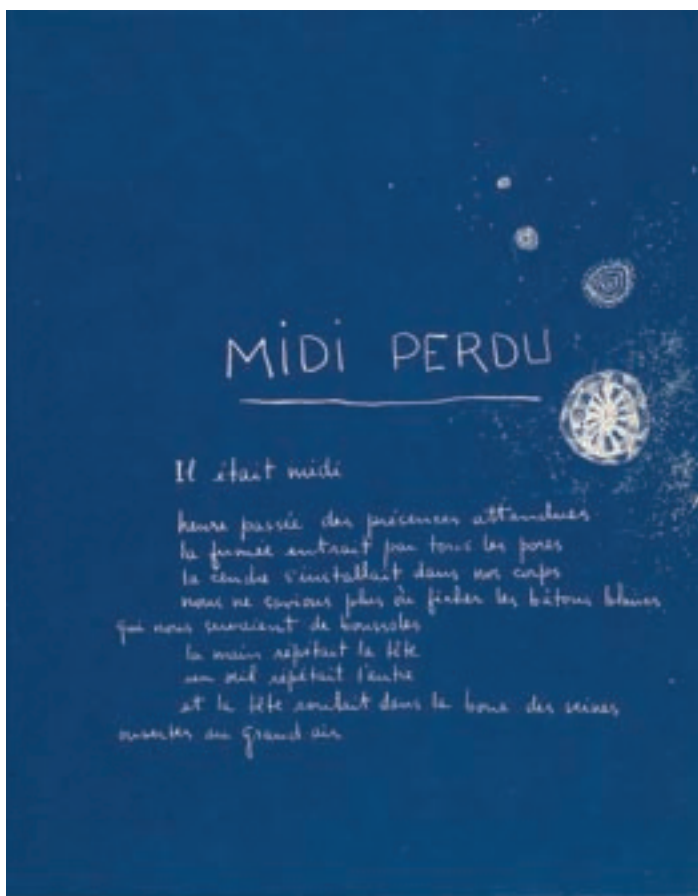 MIDI PERDU
Il était midi
heure passée des présences attendues
la fumée entrait par tous les pores
la cendre s'installait dans nos corps
nous ne savions plus où ficher les bâtons blancs
qui nous servaient de boussoles
la main répétait la tête
un œil répétait l'autre
et la tête roulait dans la boue des
ouvertes au grand air